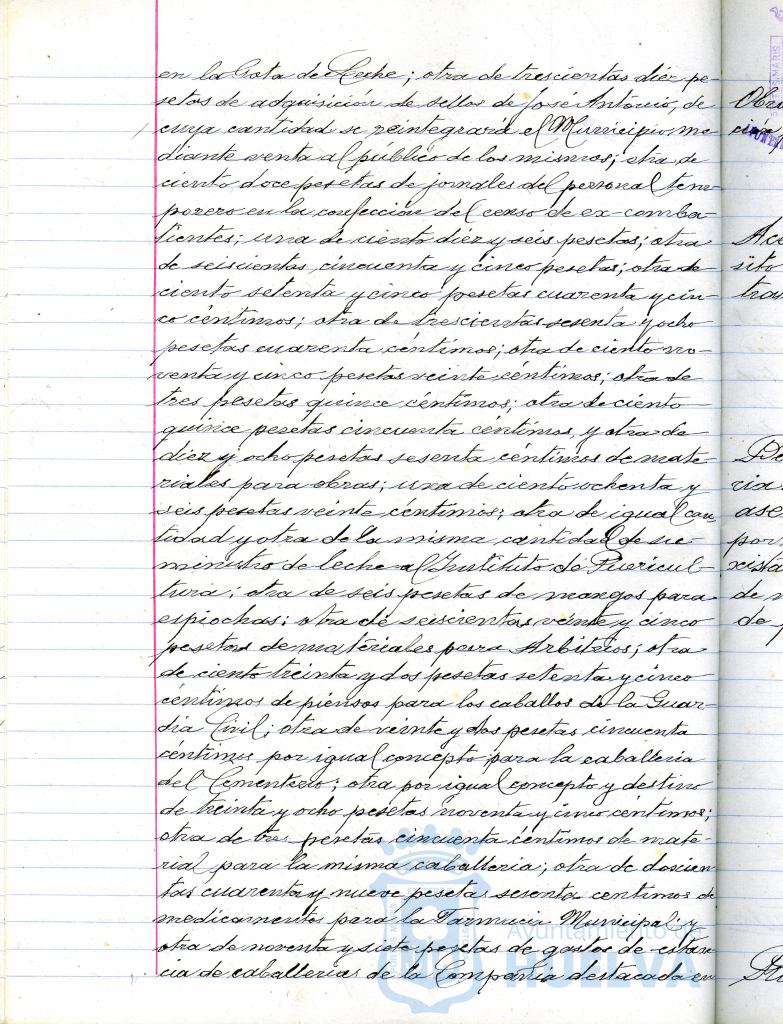 en la Gota de Leche; otra de trescientas diez pe-
setas de adquisición de sellos de José Antonio, de
cuya cantidad se reintegrará el Municipio, me
diante venta al público de los mismos; otra de
ciento doce pesetas de jornales del personal tem-
porero en la confección del censo de ex-comba-
tientes; una de ciento diez y seis pesetas; otra
de seiscientas cincuenta y cinco pesetas; otra de
ciento setenta y cinco pesetas cuarenta y cin-
co céntimos; otra de trescientas sesenta y ocho
pesetas cuarenta céntimos; otra de ciento no-
venta y cinco pesetas veinte céntimos; otra de
tres pesetas quince céntimos; otra de ciento
quince pesetas cincuenta céntimos, y otra de
diez y ocho pesetas sesenta céntimos de mate-
riales para obras; una de ciento ochenta y
seis pesetas veinte céntimos; otra de igual can-
tidad y otra de la misma cantidad de su-
ministro de leche al Instituto de Puericul-
tura; otra de seis pesetas de mangos para
espiochas; otra de seiscientas veinte y cinco
pesetas de materiales para Arbitrios; otra
de ciento treinta y dos pesetas setenta y cinco
céntimos de piensos para los caballos de la Guar-
dia Civil; otra de veinte y dos pesetas cincuenta
céntimos por igual concepto para la caballería
del Cementerio; otra por igual concepto y destino
de treinta y ocho pesetas noventa y cinco céntimos;
otra de tres pesetas cincuenta céntimos de mate-
rial para la misma caballería; otra de doscien-
tas cuarenta y nueve pesetas sesenta centimos de
medicamentos para la Farmacia Municipal; y
otra de noventa y siete pesetas de gastos de estan-
cia de caballerías de la Compañía destacada en
Ayuntamiento de
HUELVA